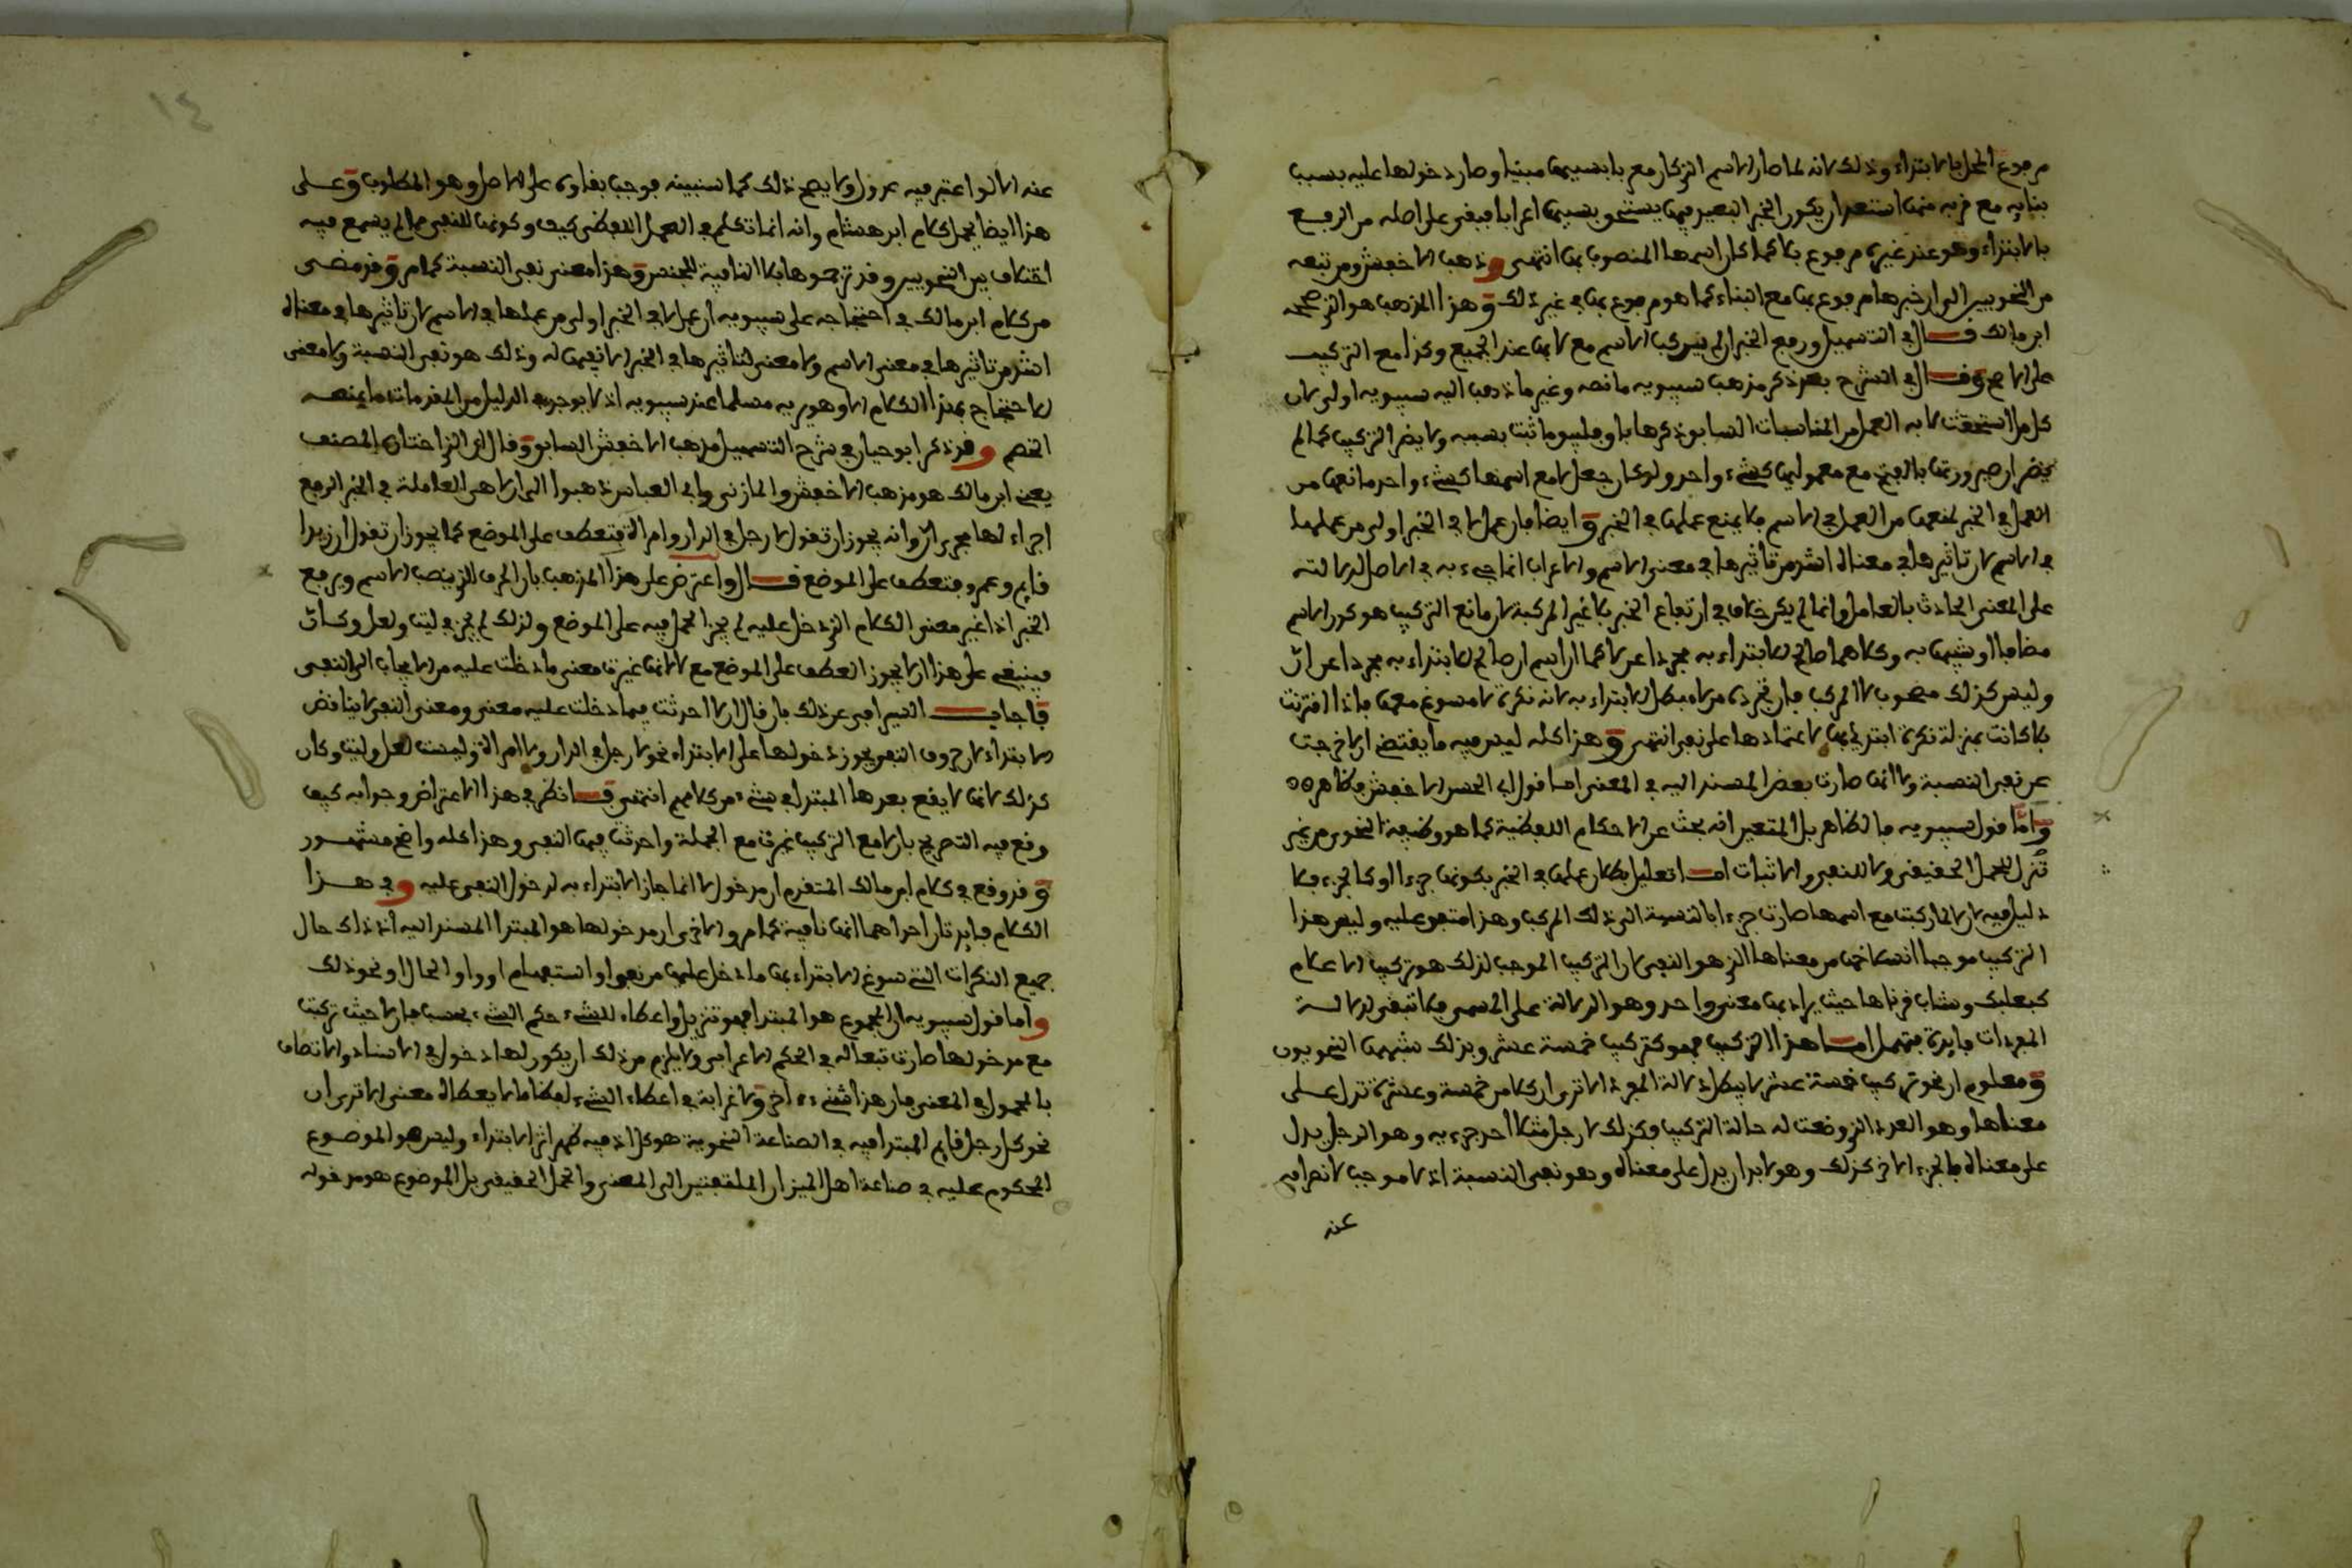 مرفوع المحل بالابتداء وذلك لانه لما صار الاسم الذي كان معربا بسببها مبنيا وصار دخولها عليه بسبب
بنائه مع قربه منها استبعد ان يكون الخبر البعيد منها يستحق بسببها اعرابا فبقي على اصله من الرفع
بالابتداء وهو عند غيره مرفوع بلا كما كان اسمها المنصوب بها انتهى وذهب الاخفش ومن تبعه
من النحويين الى ان خبرها مرفوع بها مع البناء كما هو مرفوع بها في غير ذلك وهذا المذهب هو الذي صححه
ابن مالك قال في التسهيل ورفع الخبر ان لم يتركب الاسم مع لا بها عند الجميع وكذا مع التركيب
على الاصح وقال في الشرح بعد ذكر مذهب سيبويه ما نصه وغير ما ذهب اليه سيبويه اولى لان
كل ما استحقت لا به العمل من المناسبات السابق ذكرها باق فليبق ما ثبت بسببه ولا يضر التركيب كما لم
يضر ان صيرورتها بالفتح مع معمولها كشيء واحد ولو كان جعل لا مع اسمها كشيء واحد مانعا من
العمل في الخبر لمنعها من العمل في الاسم فلا يمنع عملها في الخبر وايضا فان عمل لا في الخبر اولى من عملها
في الاسم لان تاثيرها في معناه اشد من تاثيرها في معنى الاسم والاعراب انما جيء به في الاصل للدلالة
على المعنى الحادث بالعامل وانما لم يكن خلاف في ارتفاع الخبر بلا غير المركبة لان مانع التركيب هو كون الاسم
مضافا او شبيها به وكلاهما صالح للابتداء به مجردا عن لا كما ان اسم ان صالح للابتداء به مجردا عن ان
وليس كذلك مصحوب لا المركب فان تجرده من لا مبطل للابتداء به لانه نكرة لا مسوغ معها فاذا اقترنت
بلا كانت بمنزلة نكرة ابتدئ بها لاعتمادها على نفي انتهى وهذا كله ليس فيه ما يقتضي ان لا خرجت
عن نفي النسبة ولا انها صارت بعض المسند اليه في المعنى اما قول ابي الحسن الاخفش فظاهر
واما قول سيبويه فالظاهر بل المتعين انه بحث عن الاحكام اللفظية كما هو وظيفة النحوي من غير
تنزل للعمل الحقيقي ولا للنفي والاثبات اما تعليل بطلان عملها في الخبر بكونها جزءا او كالجزء فلا
دليل فيه لان لا لما ركبت مع اسمها صارت جزءا بالنسبة الى ذلك المركب وهذا متفق عليه وليس هذا
التركيب موجبا انسلاخها من معناها الذي هو النفي لان التركيب الموجب لذلك هو تركيب الاعلام
كبعلبك وشاب قرناها حيث يراد بها معنى واحد وهو الدلالة على المسمى فلا تبقى لدلالة
المفردات فايدة فتهمل اما هذا التركيب فهو كتركيب خمسة عشر وبذلك شبهها النحويون
ومعلوم ان نحو تركيب خمسة عشر لا يبطل دلالة المفرد الا ترى ان كلا من خمسة وعشرة تدل على
معناها وهو العدد الذي وضعت له حالة التركيب وكذلك لا رجل مثلا احد جزءيه وهو الرجل يدل
على معناه فالجزء الاخر كذلك وهو لا بد ان يدل على معناه وهو نفي النسبة اذ لا موجب لانصرافه
عنه
عنه الا لو اعتبر فيه عدول ولا يصح ذلك كما سنبينه فوجب بقاؤه على الاصل وهو المطلوب وعلى
هذا ايضا يحمل كلام ابن هشام وانه انما تكلم في العمل اللفظي كيف وكونها للنفي مما لم يسمع فيه
اختلاف بين النحويين وقد ترجموها بلا النافية للجنس وهذا معنى نفي النسبة كما مر وقد مضى
من كلام ابن مالك في احتجاجه على سيبويه ان عمل لا في الخبر اولى من عملها في الاسم لان تاثيرها في معناه
اشد من تاثيرها في معنى الاسم ولا معنى لتاثيرها في الخبر الا نفيها له وذلك هو نفي النسبة ولا معنى
للاحتجاج بهذا الكلام الا وهو يريه مسلما عند سيبويه اذ لا يوجد في الدليل من المقدمات ما يمنعه
الخصم وقد ذكر ابو حيان في شرح التسهيل مذهب الاخفش السابق وقال ان الذي اختاره المصنف
يعني ابن مالك هو مذهب الاخفش والمازني وابي العباس ذهبوا الى ان لا هي العاملة في الخبر الرفع
اجراء لها مجرى ان وانه يجوز ان تقول لا رجل في الدار وامراة فتعطف على الموضع كما يجوز ان تقول ان زيدا
قايم وعمرو فتعطف على الموضع قال واعترض على هذا المذهب بان الحرف الذي ينصب الاسم ويرفع
الخبر اذا غير معنى الكلام الذي دخل عليه لم يجز الحمل فيه على الموضع ولذلك لم يجز في ليت ولعل وكان
فينبغي على هذا ان لا يجوز العطف على الموضع مع لا لانها غيرت معنى ما دخلت عليه من الايجاب الى النفي
فاجاب السيرافي عن ذلك بان قال ان لا احدثت فيما دخلت عليه معنى ومعنى النفي لا يناقض
الابتداء لان حروف النفي يجوز دخولها على الابتداء نحو لا رجل في الدار ولا امراة وليست لعل وليت وكان
كذلك لانها لا يقع بعدها المبتدا في شيء من كلامهم انتهى قلت انظر في هذا الاعتراض وجوابه كيف
وقع فيه التصريح بان لا مع التركيب غيرت مع الجملة واحدثت فيها النفي وهذا كله واضح مشهور
وقد وقع في كلام ابن مالك المتقدم ان مدخول لا انما جاز الابتداء به لدخول النفي عليه وفي هذا
الكلام فايدتان احداهما انها نافية كما مر والاخرى ان مدخولها هو المبتدا المسند اليه اذ ذاك حال
جميع النكرات التي سوغ الابتداء بها ما دخل عليها من نفي او استفهام او واو الحال او نحو ذلك
واما قول سيبويه ان المجموع هو المبتدا فهو تنزيل واعطاء للشيء حكم الشيء بحسب فان لا حيث تركبت
مع مدخولها صارت تبعا له في الحكم الاعرابي ولا يلزم من ذلك ان يكون لها دخول في الاسناد والاتصاف
بالمحمول في المعنى فان هذا شيء اخر ولا غرابة في اعطاء الشيء لفظا ما لا يعطاه معنى الا ترى ان
نحو كل رجل قايم المبتدا فيه في الصناعة النحوية هو كل اذ فيه ظهر اثر الابتداء وليس هو الموضوع
المحكوم عليه في صناعة اهل الميزان الملتفتين الى المعنى والحمل الحقيقي بل الموضوع هو مدخوله